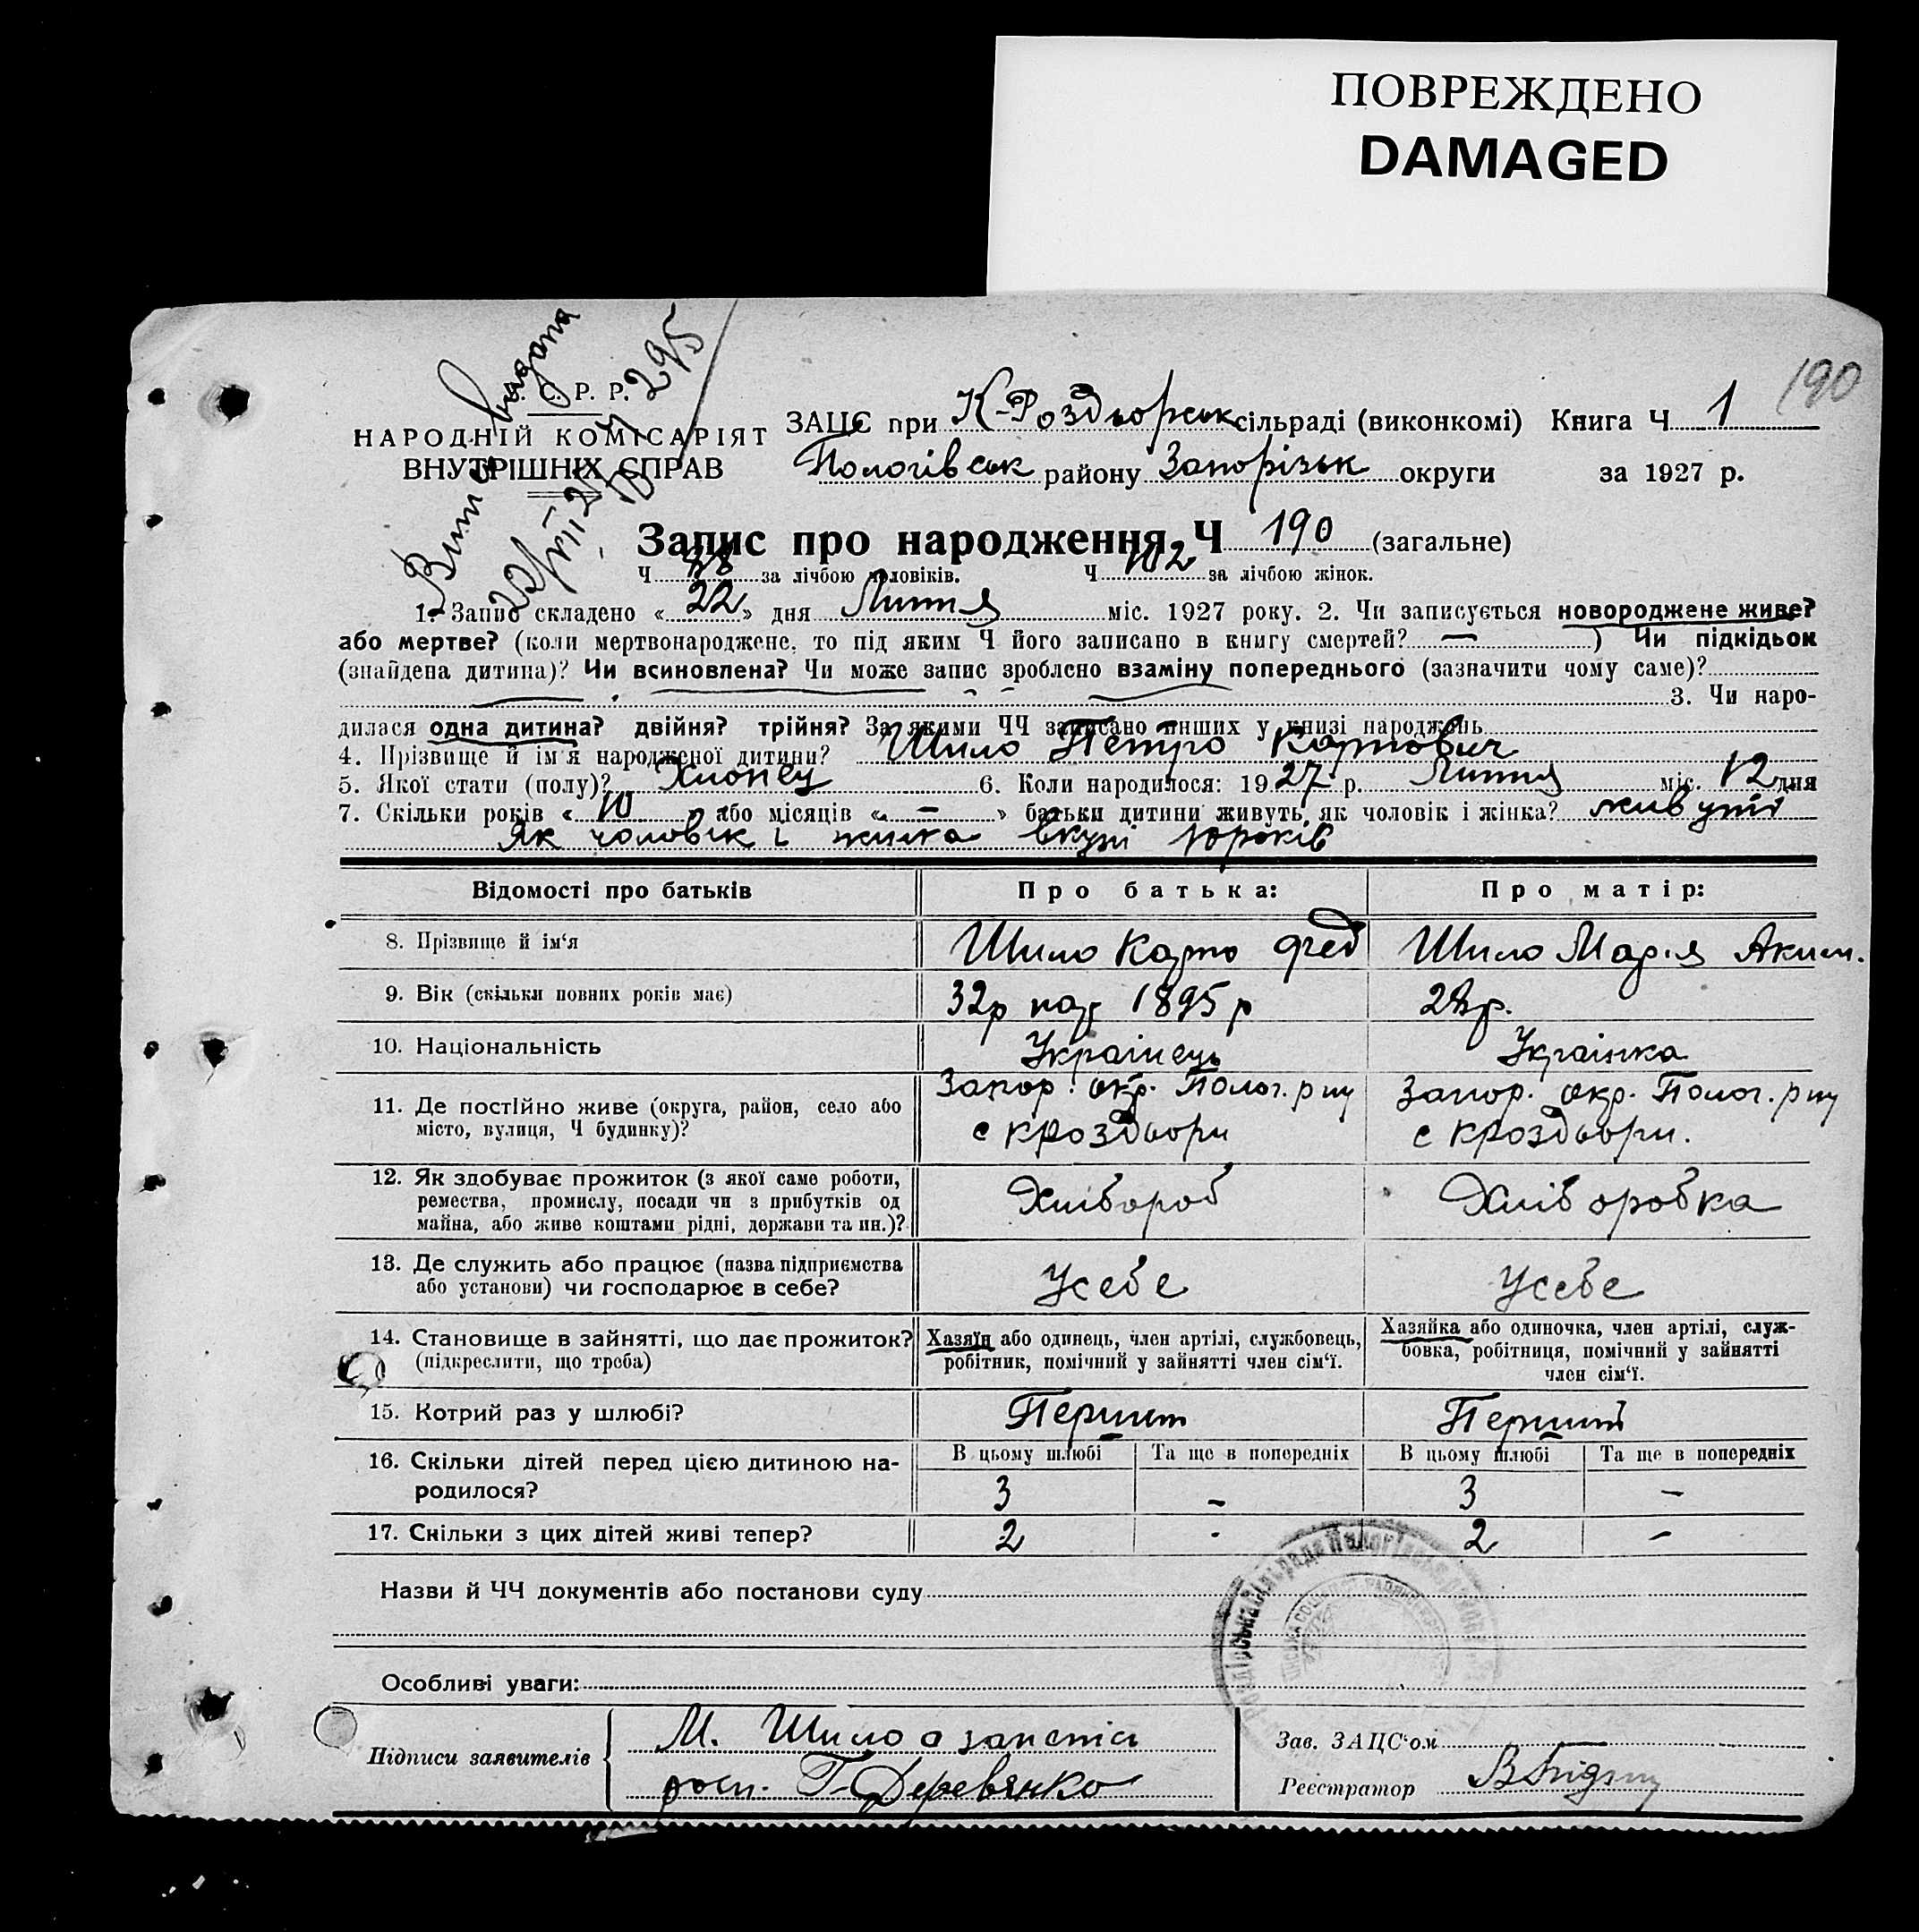 ПОВРЕЖДЕНО
DAMAGED
190
С. Р. Р.
НАРОДНІЙ КОМІСАРІЯТ
ВНУТРІШНІХ СПРАВ
видана
295
ЗАЦС при К-Роздорськ сільраді (виконкомі) Книга Ч 1
Пологівськ району Запорізьк округи за 1927 р.
Запис про народження Ч 190 (загальне)
Ч 88 за лічбою чоловіків. Ч 102 за лічбою жінок.
1. Запис складено «22» дня Липня міс. 1927 року. 2. Чи записується новороджене живе?
або мертве? (коли мертвонароджене, то під яким Ч його записано в книгу смертей? — ) Чи підкідьок
(знайдена дитина)? Чи всиновлена? Чи може запис зроблено взаміну попереднього (зазначити чому саме)?
3. Чи наро-
дилася одна дитина? двійня? трійня? За якими ЧЧ записано инших у книзі народжень
4. Прізвище й ім'я народженої дитини? Шило Петро Карпович
5. Якої стати (полу)? Хлопец 6. Коли народилося: 1927 р. Липня міс. 12 дня
7. Скільки років «10» або місяців «-» батьки дитини живуть, як чоловік і жінка? живуть
Як чоловік і жинка вкупі 10 років
Відомості про батьків Про батька: Про матір:
8. Прізвище й ім'я Шило Карпо Фед Шило Марія Яким.
9. Вік (скільки повних років має) 32р нар 1895 р 28р.
10. Національність Українець Українка
11. Де постійно живе (округа, район, село або місто, вулиця, Ч будинку)? Запор. окр. Полог. р ну Запор. окр. Полог. р ну
с Кроздори с Кроздори.
12. Як здобуває прожиток (з якої саме роботи, ремества, промислу, посади чи з прибутків од майна, або живе коштами рідні, держави та ин.)? Хлібороб Хліборобка
13. Де служить або працює (назва підприємства або установи) чи господарює в себе? Усебе Усебе
14. Становище в зайнятті, що дає прожиток? (підкреслити, що треба) Хазяїн або одинець, член артілі, службовець, робітник, помічний у зайнятті член сім'ї. Хазяйка або одиночка, член артілі, служ-
бовка, робітниця, помічний у зайнятті
член сім'ї.
15. Котрий раз у шлюбі? Перший Перший
16. Скільки дітей перед цією дитиною на- В цьому шлюбі Та ще в попередніх В цьому шлюбі Та ще в попередніх
родилося? 3 - 3 -
17. Скільки з цих дітей живі тепер? 2 - 2 -
Назви й ЧЧ документів або постанови суду
Особливі уваги:
Підписи заявителів М. Шило а за
росп. Г. Деревянко
Зав. ЗАЦС'ом
Реєстратор